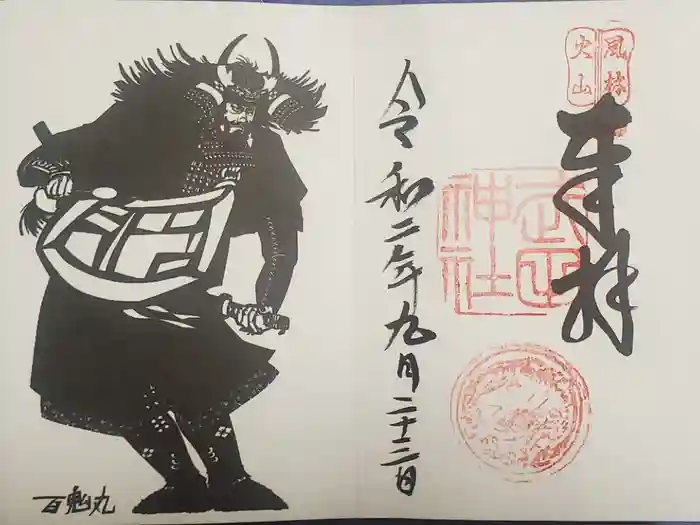 風林
火山
奉拝
武田
神社
令和二年九月二十二日
百鬼丸